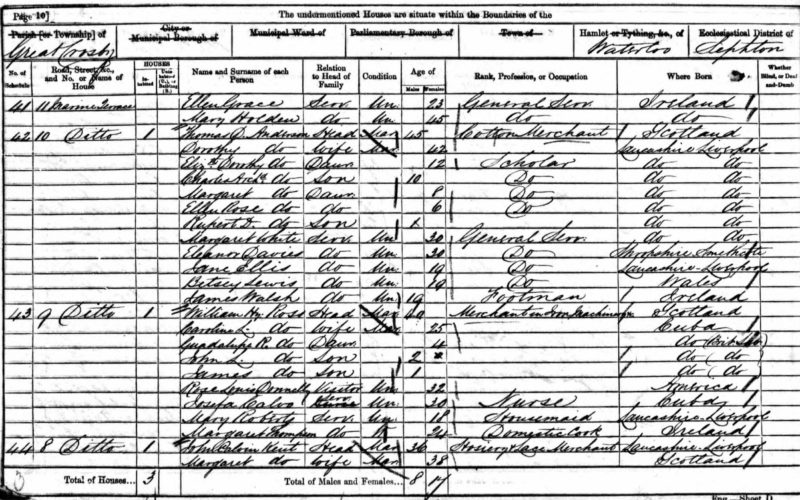 Page 10]
The undermentioned Houses are situate within the Boundaries of the
Parish [or Township] of
City or Municipal Borough of
Municipal Ward of
Parliamentary Borough of
Town of
Hamlet or Tything, &c., of
Ecclesiastical District of
Great Crosby
Waterloo
Sephton
No. of Schedule
Road, Street, &c., and No. or Name of House
HOUSES
Inhabited
Name and Surname of each Person
Relation to Head of Family
Condition
Age of
Males
Females
Rank, Profession, or Occupation
Where Born
Whether Blind, or Deaf-and-Dumb
41 11 Marine Terrace Ellen Grace Serv. Un. 23 General Serv. Ireland
Mary Holden do Un. 45 do do
42 10 Ditto 1 Thomas D. Anderson Head Mar 45 Cotton Merchant Scotland
Dorothy do Wife Mar 42 Lancashire Liverpool
Eliz. Dorothy do Daur. 12 Scholar do do
Charles do Son 10 Do do do
Margaret do Daur. 8 Do do do
Ellen Rose do do 6 Do do do
Rupert D. do Son do do
Margaret White Serv. Un. 30 General Serv. do do
Eleanor Davies do Un. 30 Do Shropshire
Jane Ellis do Un. 19 Do Lancashire Liverpool
Betsey Lewis do Un. 19 Do Wales
James Walsh do Un. 19 Footman Ireland
43 9 Ditto 1 William Hy. Ross Head Mar 40 Merchant in Scotland
Caroline L. do Wife Mar 25 Cuba
Guadalupe R. do Daur. 4 do
John L. do Son 2 do do
James do Son 1 do do
Rose Donnelly Visitor Un. 32 America
Josefa Calvo Serv. Un. 30 Nurse Cuba
Mary Roberts Serv. Un. 18 Housemaid Lancashire Liverpool
Margaret Thompson do 24 Domestic Cook Ireland
44 8 Ditto 1 John Kent Head Mar 36 Hosiery & Lace Merchant Lancashire Liverpool
Margaret do Wife Mar 38 Scotland
Total of Houses... 3
Total of Males and Females... 8 17
Eng.—Sheet D.